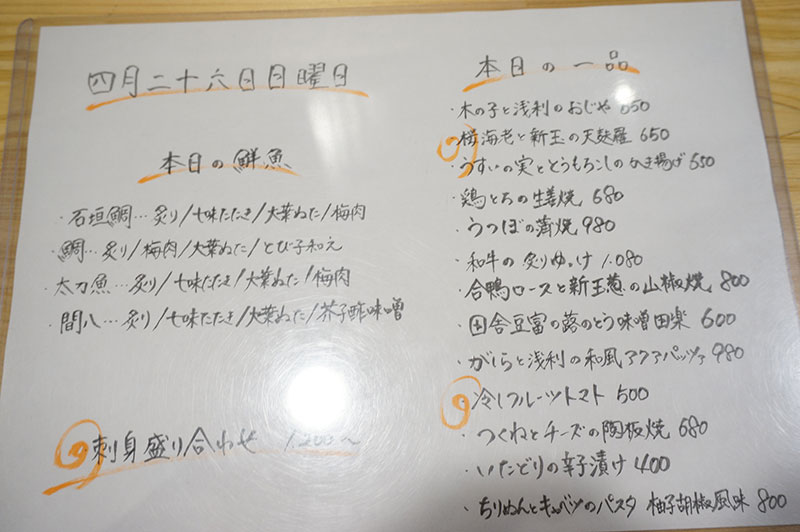 四月二十六日日曜日
本日の鮮魚
・石垣鯛…炙り/七味たたき/大葉ぬた/梅肉
・鯛…炙り/梅肉/大葉ぬた/とび子和え
・太刀魚…炙り/七味たたき/大葉ぬた/梅肉
・間八…炙り/七味たたき/大葉ぬた/芥子酢味噌
刺身盛り合わせ 1,200~
本日の一品
・木の子と浅利のおじや 650
・桜海老と新玉の天麩羅 650
・うすいの実ととうもろこしのかき揚げ 650
・鶏とろの生姜焼 680
・うつぼの蒲焼 980
・和牛の炙りゆっけ 1.080
・合鴨ロースと新玉葱の山椒焼 800
・田舎豆富の蕗のとう味噌田楽 600
・がしらと浅利の和風アクアパッツァ 980
・冷しフルーツトマト 500
・つくねとチーズの陶板焼 680
・いたどりの辛子漬け 400
・ちりめんとキャベツのパスタ 柚子胡椒風味 800